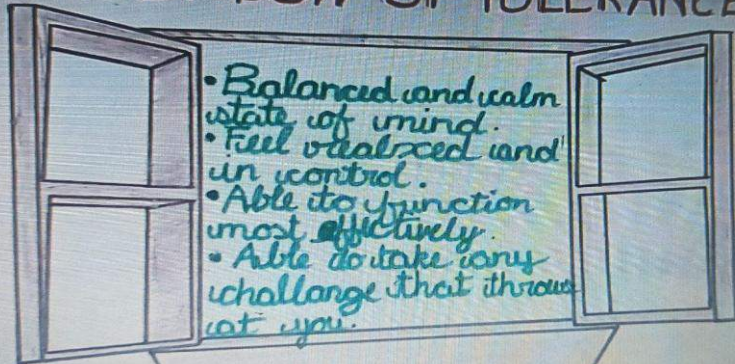 OF TOLERANCE
• Balanced and calm
state of mind.
• Feel realaxed and
in control.
• Able to function
most effictively.
• Able do take any
challange that throws
at you.